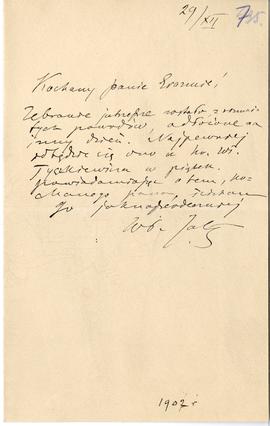 29/XII
Kochany panie Erazmie!
Zebranie jutrzejsze zostało z rozmai-
tych powodów, odłożone na
inny dzień. Najpewniej
odbędzie się ono u hr. Wł.
Tyszkiewicza w piątek.
zawiadamiając o tem, ko-
chanego pana, ściskam
Go jaknajserdeczniej
1902 r